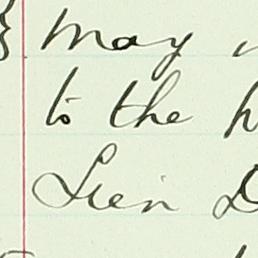 may
to the
Lien